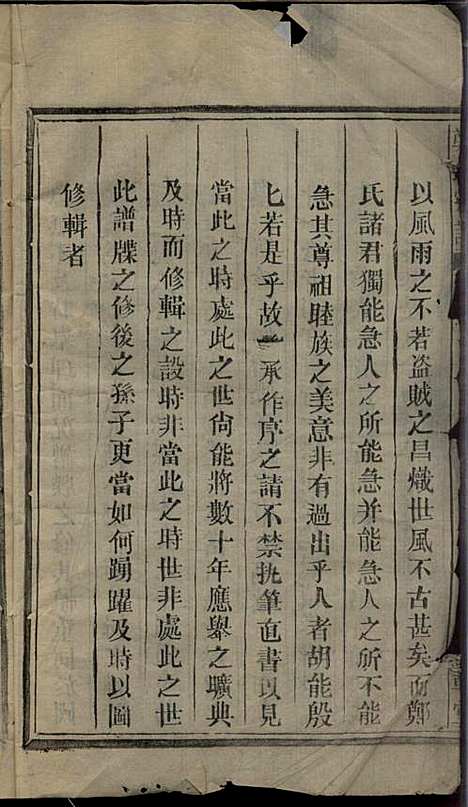 以風雨之不若盜賊之昌熾世風不古甚矣而鄭
氏諸君獨能急人之所能急并能急人之所不能
急其尊祖睦族之美意非有過出乎人者胡能殷
匕若是乎故承作序之請不禁执筆直書以見
當此之時處此之世尙能將數十年應舉之曠典
及時而修輯之設時非當此之時世非處此之世
此譜牒之修後之孫子更當如何踴躍及時以圖
修輯者